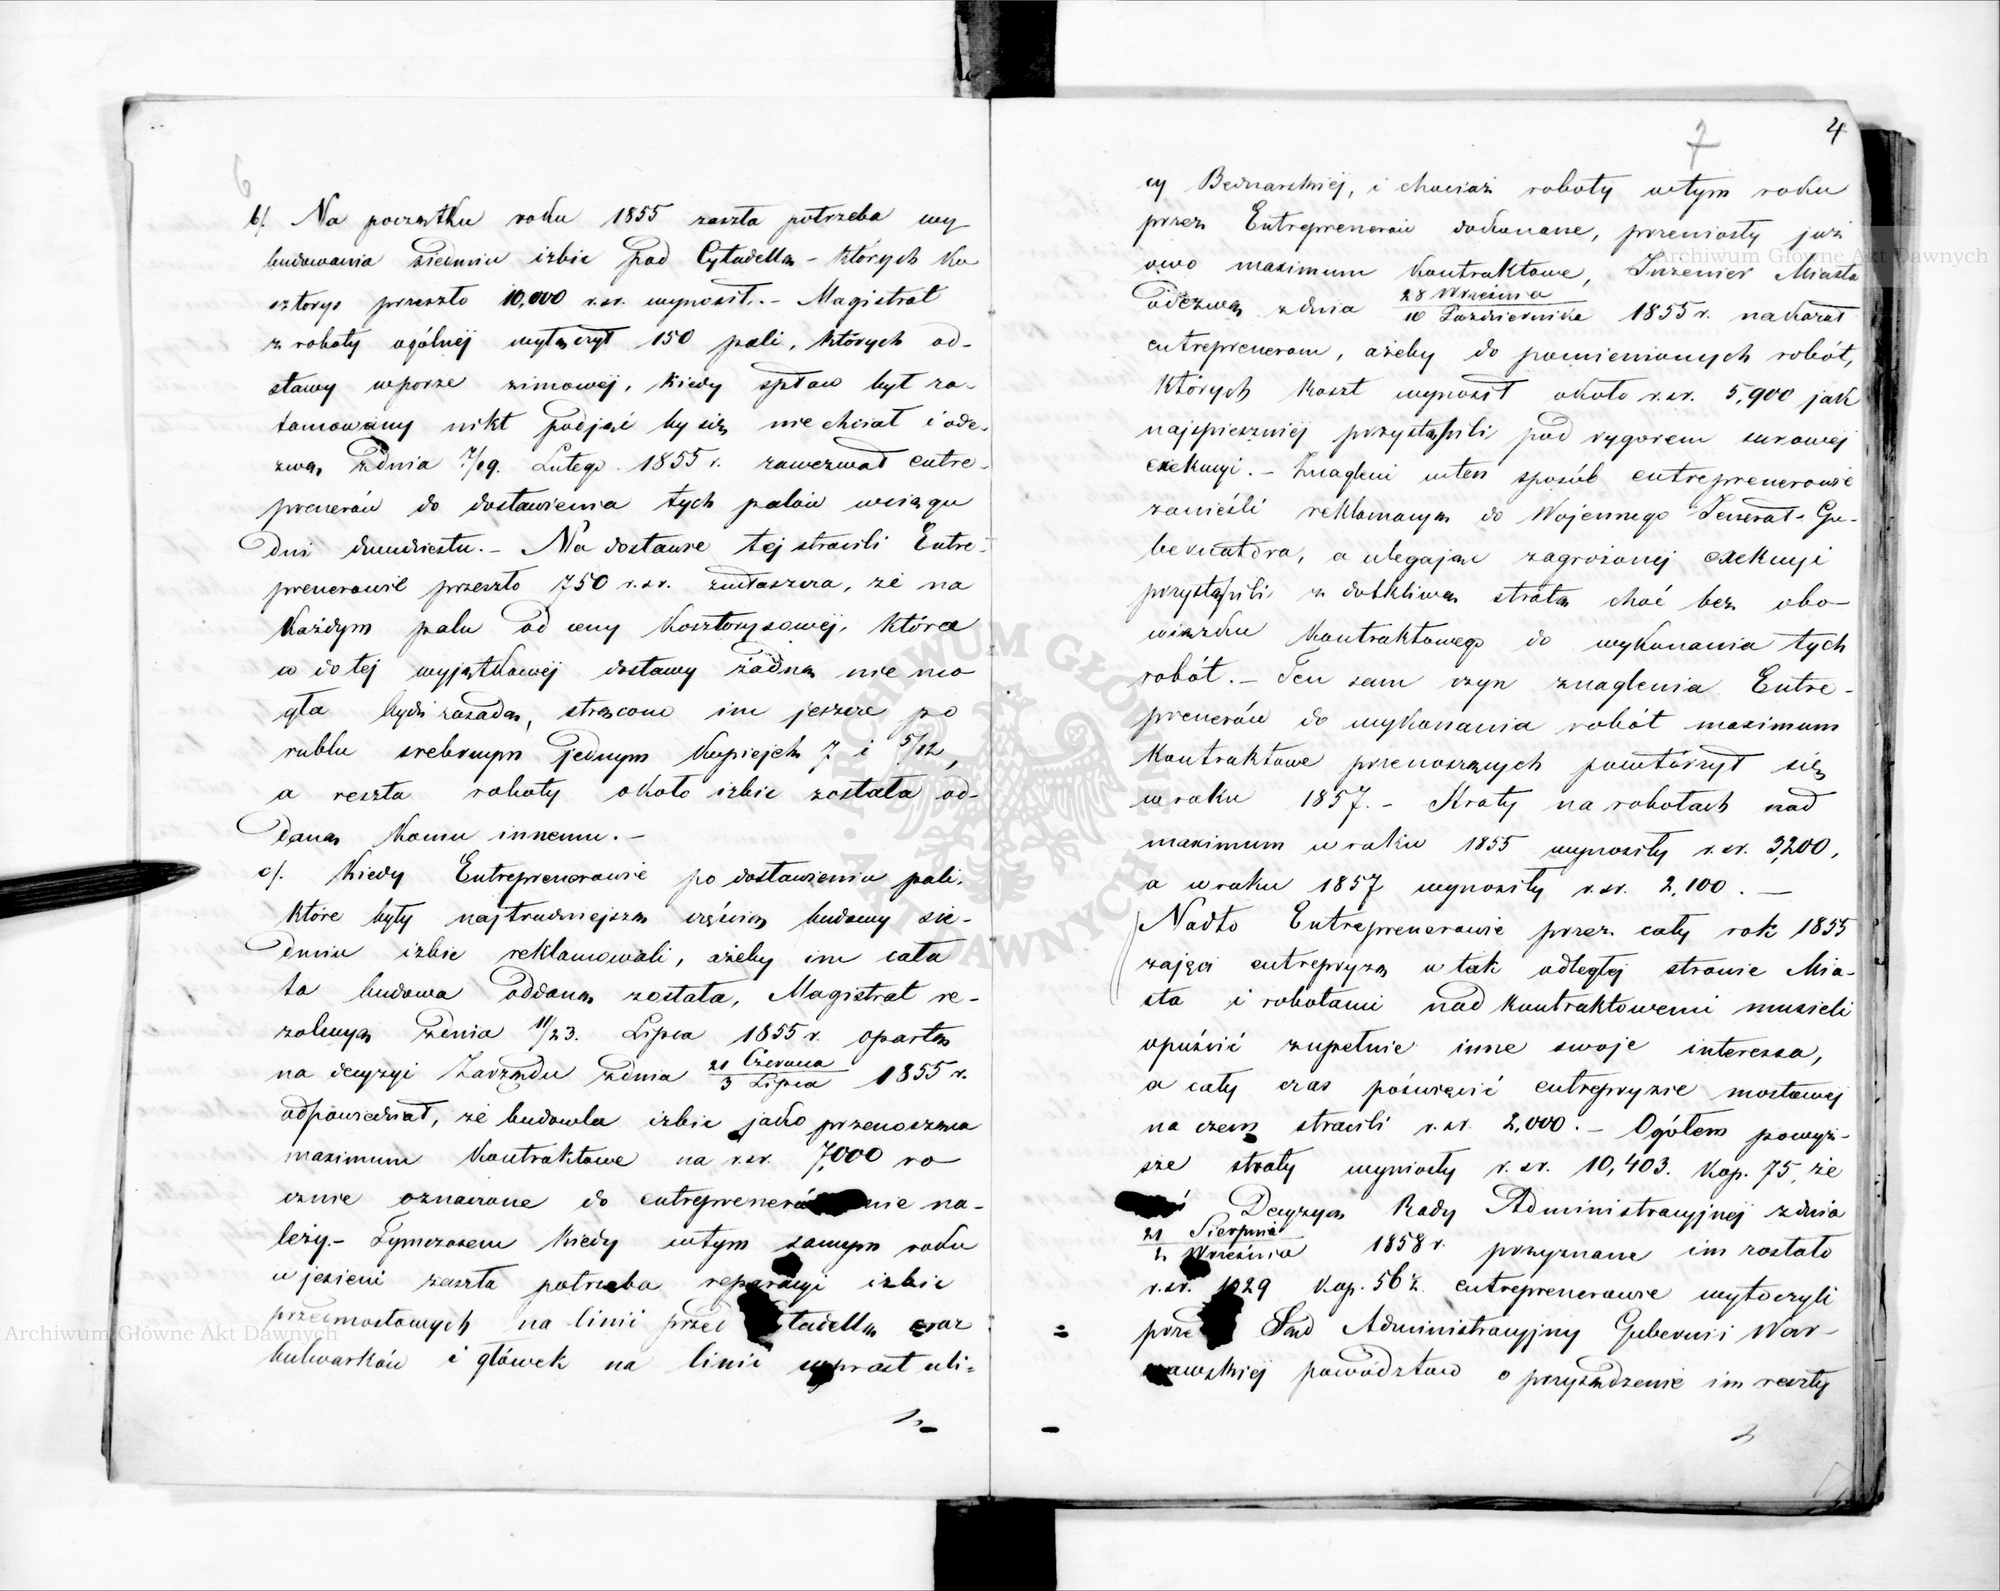 6
b/. Na początku roku 1855 zaszła potrzeba wy
budowania siedmiu izbic pod Cytadellą – których ko
sztorys przeszło 10,000 r.sr. wynosił. – Magistrat
z roboty ogólnej wyłączył 150 pali, których od-
stawy w porze zimowej, kiedy spław był za-
tamowany nikt podjąć by się nie chciał i ode-
zwą z dnia 7/19. Lutego 1855 r. zawezwał entre-
prenerów do dostawienia tych palów w ciągu
dni dwudziestu. – Na dostawie tej stracili Entre-
prenerowie przeszło 750 r.sr. zwłaszcza, że na
każdym palu od ceny kosztorysowej, która
w do tej wyjątkowej dostawy żadną nie mo
gła bydź zasadą, strącono im jeszcze po
rublu srebrnym jednym kopiejek 7 i 5/12,
a reszta roboty około izbic została od-
daną komu innemu. –
c/. Kiedy Entreprenerowie po dostawieniu pali,
które były najtrudniejszą częścią budowy sie-
dmiu izbic reklamowali, ażeby im cała
ta budowa oddaną została, Magistrat re-
zolucyą z dnia 11/23. Lipca 1855 r. opartą
na decyzyi Zarządu z dnia 21 Czerwca / 3 Lipca 1855 r.
odpowiedział, że budowla izbic jako przenosząca
maximum kontraktowe na r.sr. 7,000 ro
cznie oznaczone do entreprenerów nie na-
leży. – Tymczasem kiedy w tym samym roku
w jesieni zaszła potrzeba reparacyi izbic
przedmostowych na linii przed Cytadellą oraz
bulwarków i główek na linii wprost uli-
7
4
cy Bednarskiej, i chociaż roboty w tym roku
przez Entreprenerów dokonane, przeniosły już
owo maximum kontraktowe, Inżenier Miasta
odezwą z dnia 28 Września / 10 Października 1855 r. nakazał
entreprenerom, ażeby do pomienionych robót,
których koszt wynosił około r.sr. 5,900 jak
najspieszniej przystąpili pod rygorem surowej
exekucyi. – Znagleni w ten sposób entreprenerowie
zanieśli reklamacyą do Wojennego Jenerał-Gu-
bernatora, a ulegając zagrożonej exekucyi
przystąpili z dotkliwą stratą choć bez obo-
wiązku kontraktowego do wykonania tych
robót. – Ten sam czyn znaglenia Entre-
prenerów do wykonania robót maximum
kontraktowe przenoszących powtórzył się
w roku 1857. – Straty na robotach nad
maximum w roku 1855 wynosiły r.sr. 3,200,
a w roku 1857 wynosiły r.sr. 2,100. –
Nadto Entreprenerowie przez cały rok 1855
zajęci entrepryzą w tak odległej stronie Mia-
sta i robotami nad kontraktowemi musieli
opuścić zupełnie inne swoje interessa,
a cały czas poświęcić entrepryzie mostowej
na czem stracili r.sr. 2,000. – Ogółem powyż-
sze straty wyniosły r.sr. 10,403. kop. 75, że
Decyzyą Rady Administracyjnej z dnia
21 Sierpnia / 2 Września 1858 r. przyznane im zostało
r.sr. 1029 kop. 56½ entreprenerowie wytoczyli
przed Sąd Administracyjny Gubernii War-
szawskiej powództwo o przysądzenie im reszty
Archiwum Główne Akt Dawnych
Archiwum Główne Akt Dawnych
ARCHIWUM GŁÓWNE AKT DAWNYCH